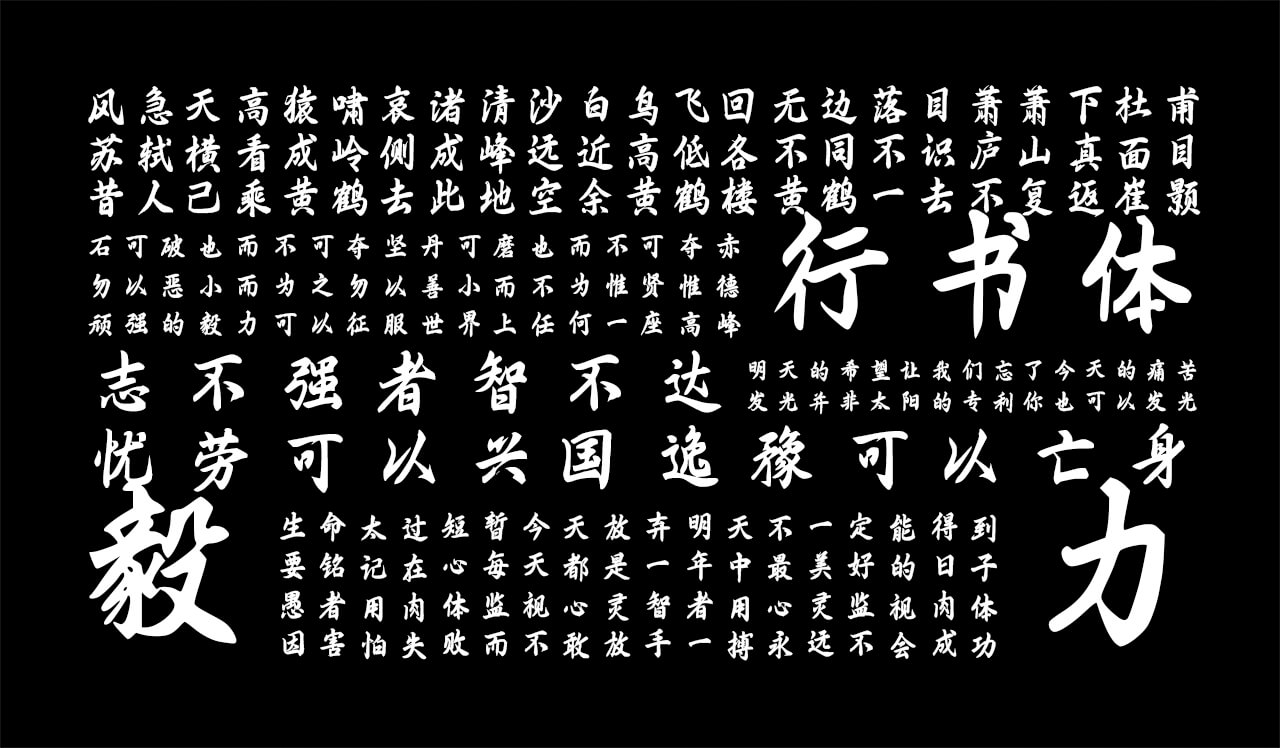 风急天高猿啸哀诸清沙白鸟飞回无边落目萧萧下杜甫
苏轼横看成岭侧成峰远近高低各不同不识庐山真面目
昔人己乘黄鹤去此地空余黄鹤楼黄鹤一去不复返崔颢
石可破也而不可夺坚丹可磨也而不可夺赤
勿以恶小而为之勿以善小而不为惟贤惟德
顽强的毅力可以征服世界上任何一座高峰
行书体
志不强者智不达
明天的希望让我们忘了今天的痛苦
发光并非太阳的专利你也可以发光
忧劳可以兴国逸豫可以亡身
毅力
生命太过短暂今天放弃明天不一定能得到
要铭记在心每天都是一年中最美好的日子
愚者用肉体监视心灵智者用心灵监视肉体
因害怕失败而不敢放手一搏永远不会成功